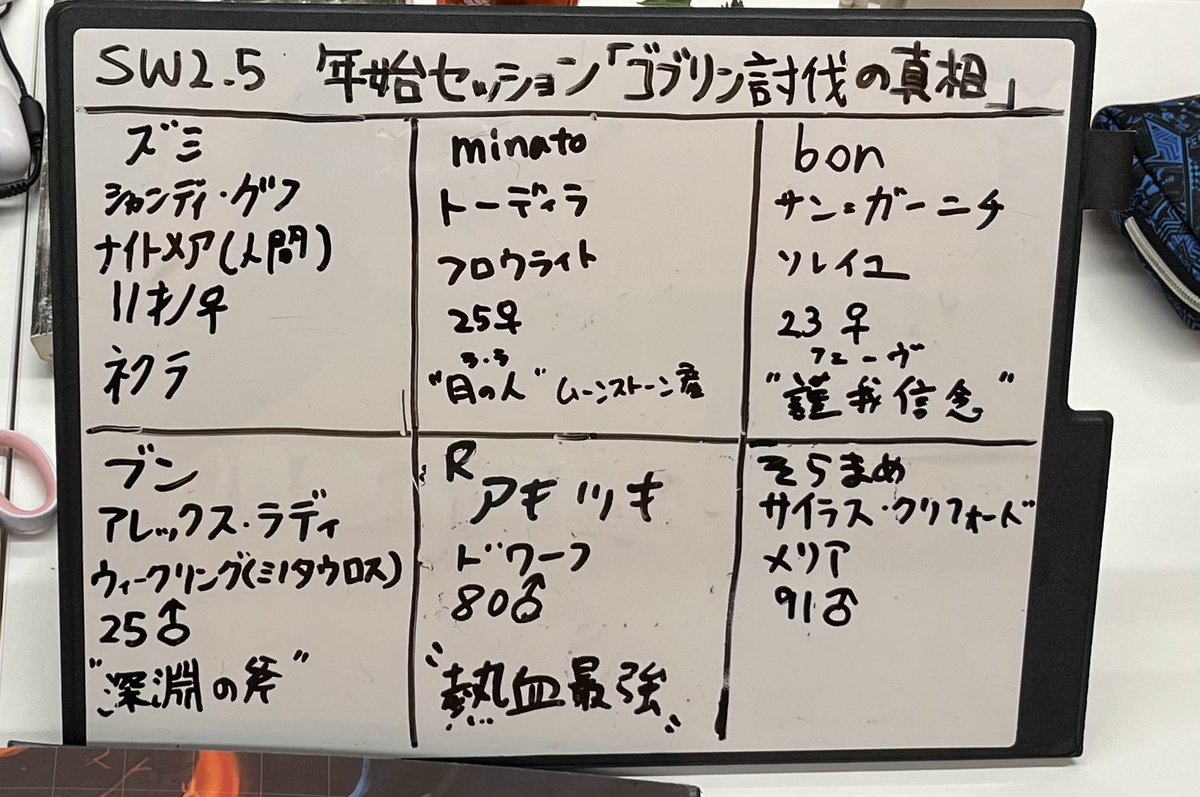 SW2.5 年始セッション「ゴブリン討伐の真相」
ズミ
シャンディ・グフ
ナイトメア(人間)
11才/♀
ネクラ
minato
トーディラ
フロウライト
25♀
"目の人" ムーンストーン産
bon
サン=ガーニチ
ソレイユ
23♀
フェーヴ
"謹我信念"
ブン
アレックス・ラディ
ウィークリング(ミノタウロス)
25♂
"深淵の斧"
R
アキツキ
ドワーフ
80♂
"熱血最強"
そらまめ
サイラス・クリフォード
メリア
91♂